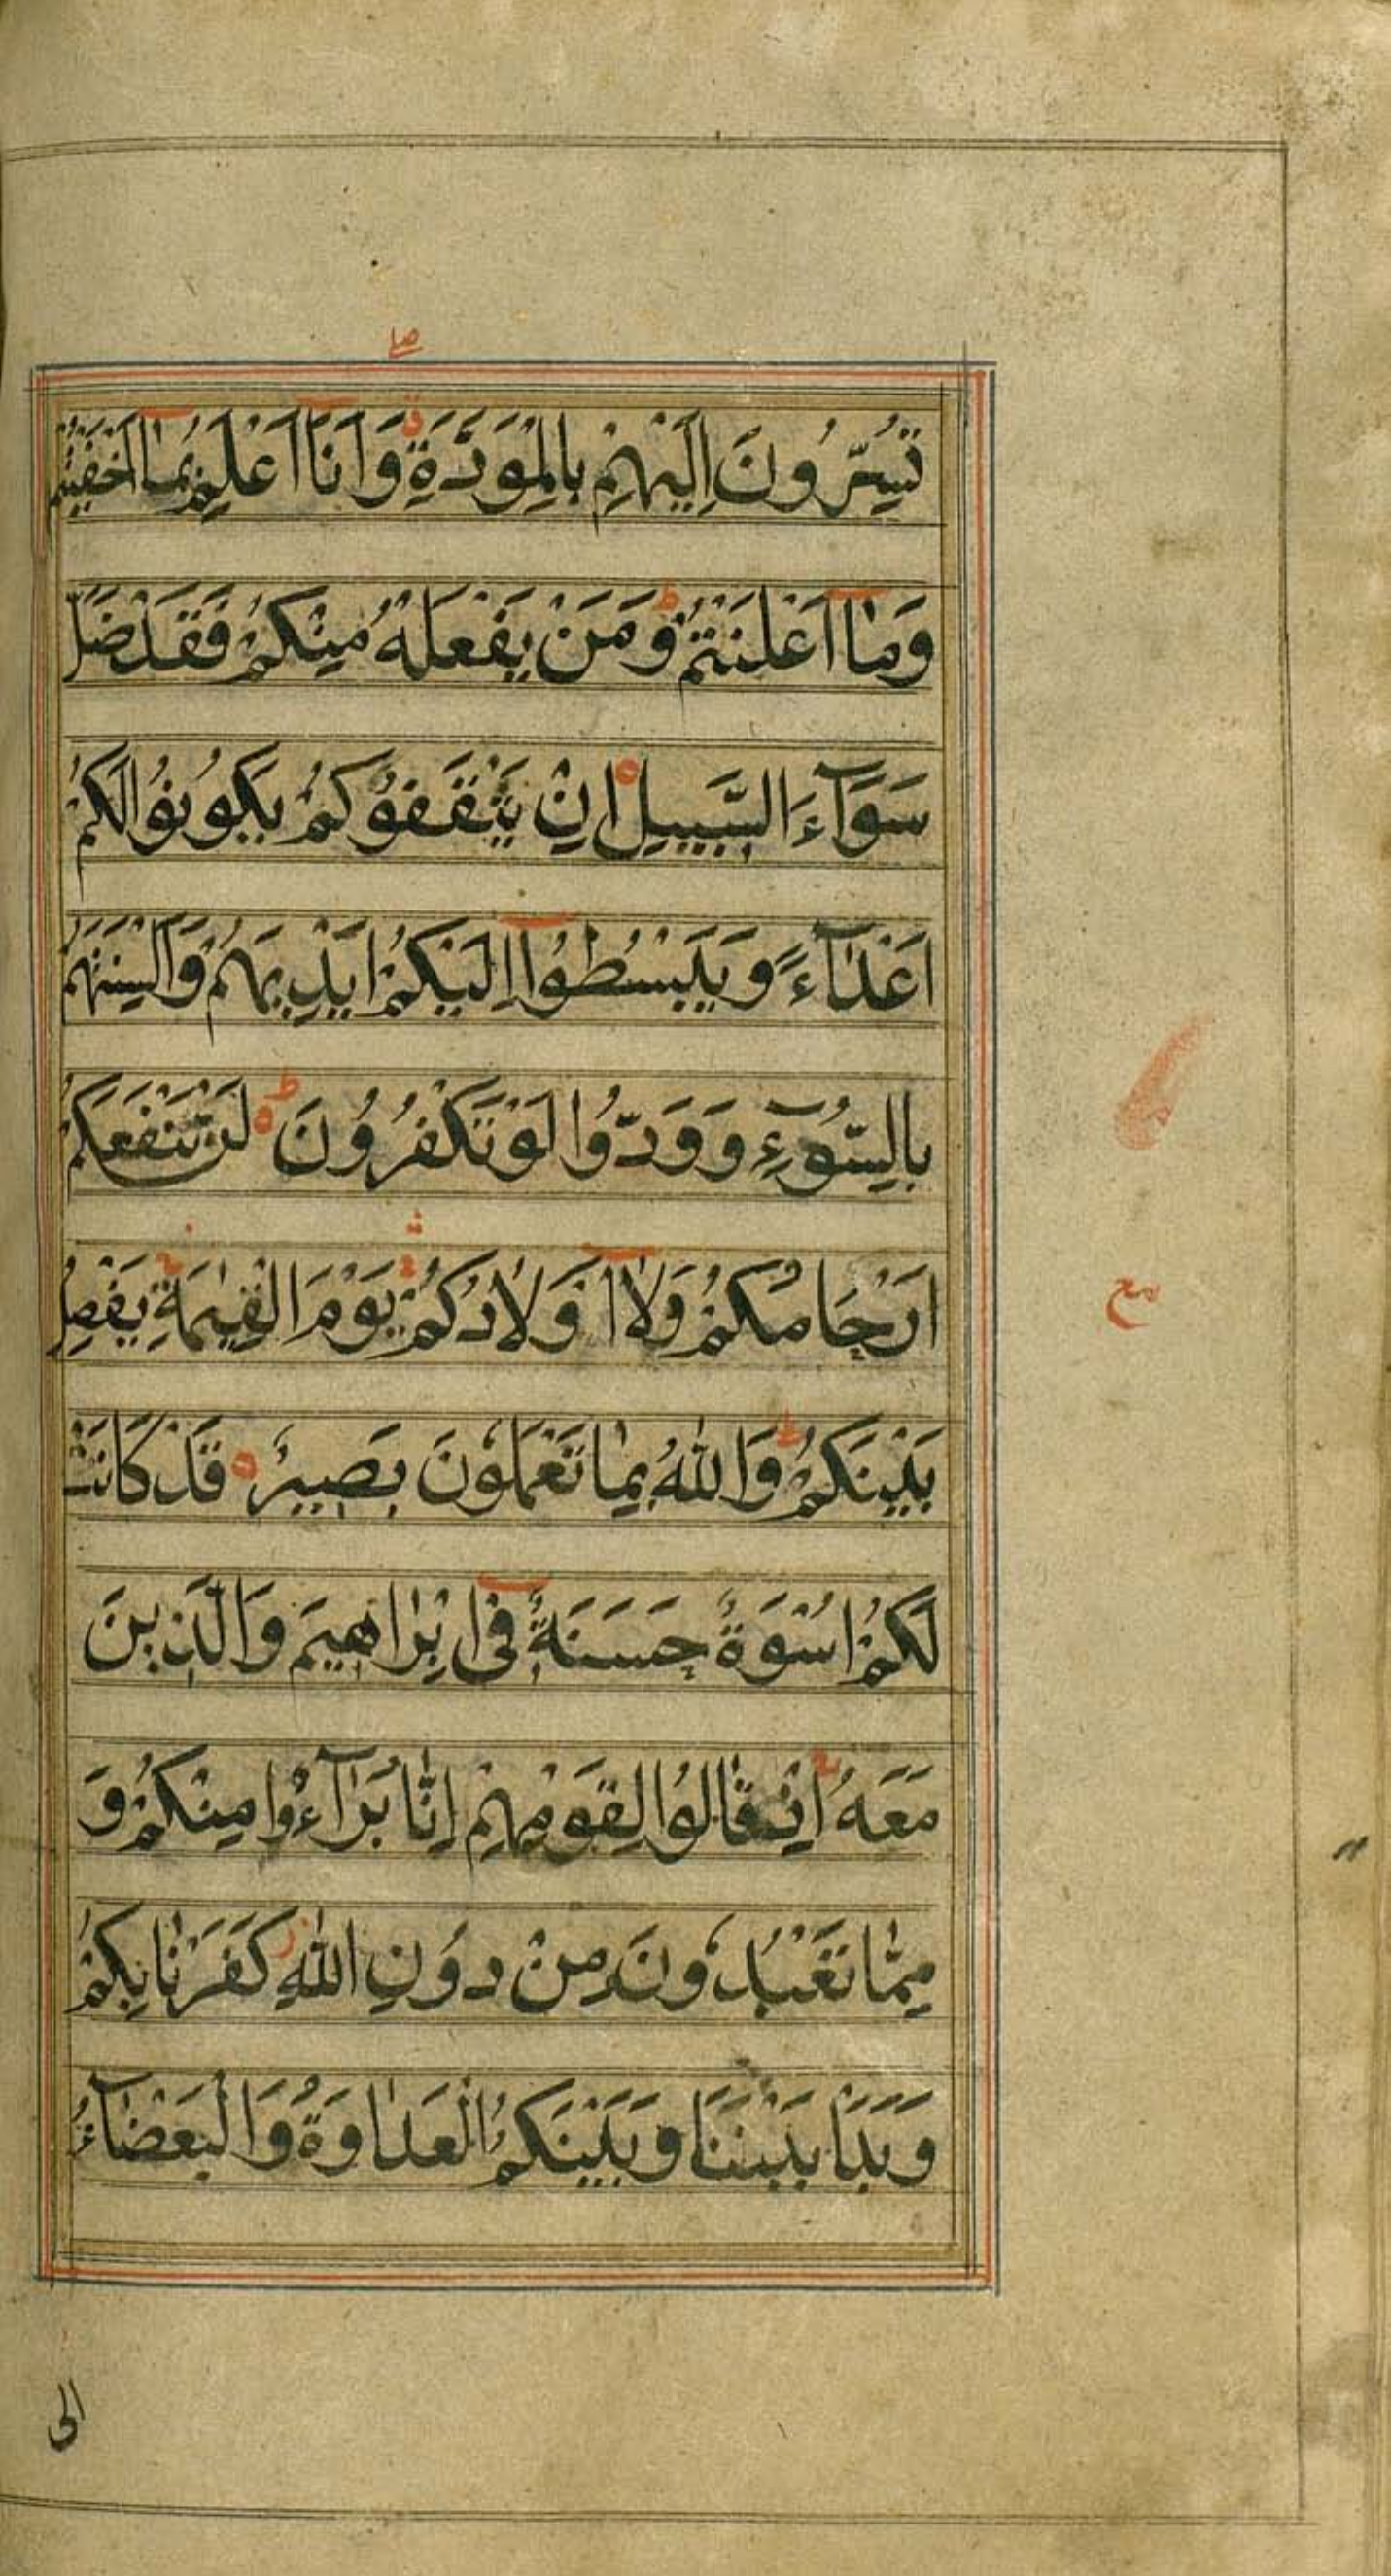 صلے
تُسِرُّونَ اِلَيْهِمْ بِالْمَوَدَّةِ وَاَنَا۠ اَعْلَمُ بِمَآ اَخْفَيْتُمْ
وَمَآ اَعْلَنْتُمْ ط وَمَنْ يَفْعَلْهُ مِنْكُمْ فَقَدْ ضَلَّ
سَوَآءَ السَّبِيلِ ۝ اِنْ يَثْقَفُوكُمْ يَكُونُوا لَكُمْ
اَعْدَآءً وَيَبْسُطُوٓا اِلَيْكُمْ اَيْدِيَهُمْ وَاَلْسِنَتَهُمْ
بِالسُّوٓءِ وَوَدُّوا لَوْ تَكْفُرُونَ ط ۝ لَنْ تَنْفَعَكُمْ
اَرْحَامُكُمْ وَلَآ اَوْلَادُكُمْ يَوْمَ الْقِيٰمَةِ يَفْصِلُ
مع
بَيْنَكُمْ ط وَاللّٰهُ بِمَا تَعْمَلُونَ بَصِيرٌ ۝ قَدْ كَانَتْ
لَكُمْ اُسْوَةٌ حَسَنَةٌ فِىٓ اِبْرَاهِيمَ وَالَّذِينَ
مَعَهُ اِذْ قَالُوا لِقَوْمِهِمْ اِنَّا بُرَآءٰٓؤُا مِنْكُمْ وَ
مِمَّا تَعْبُدُونَ مِنْ دُونِ اللّٰهِ ز كَفَرْنَا بِكُمْ
وَبَدَا بَيْنَنَا وَبَيْنَكُمُ الْعَدَاوَةُ وَالْبَغْضَآءُ
الى